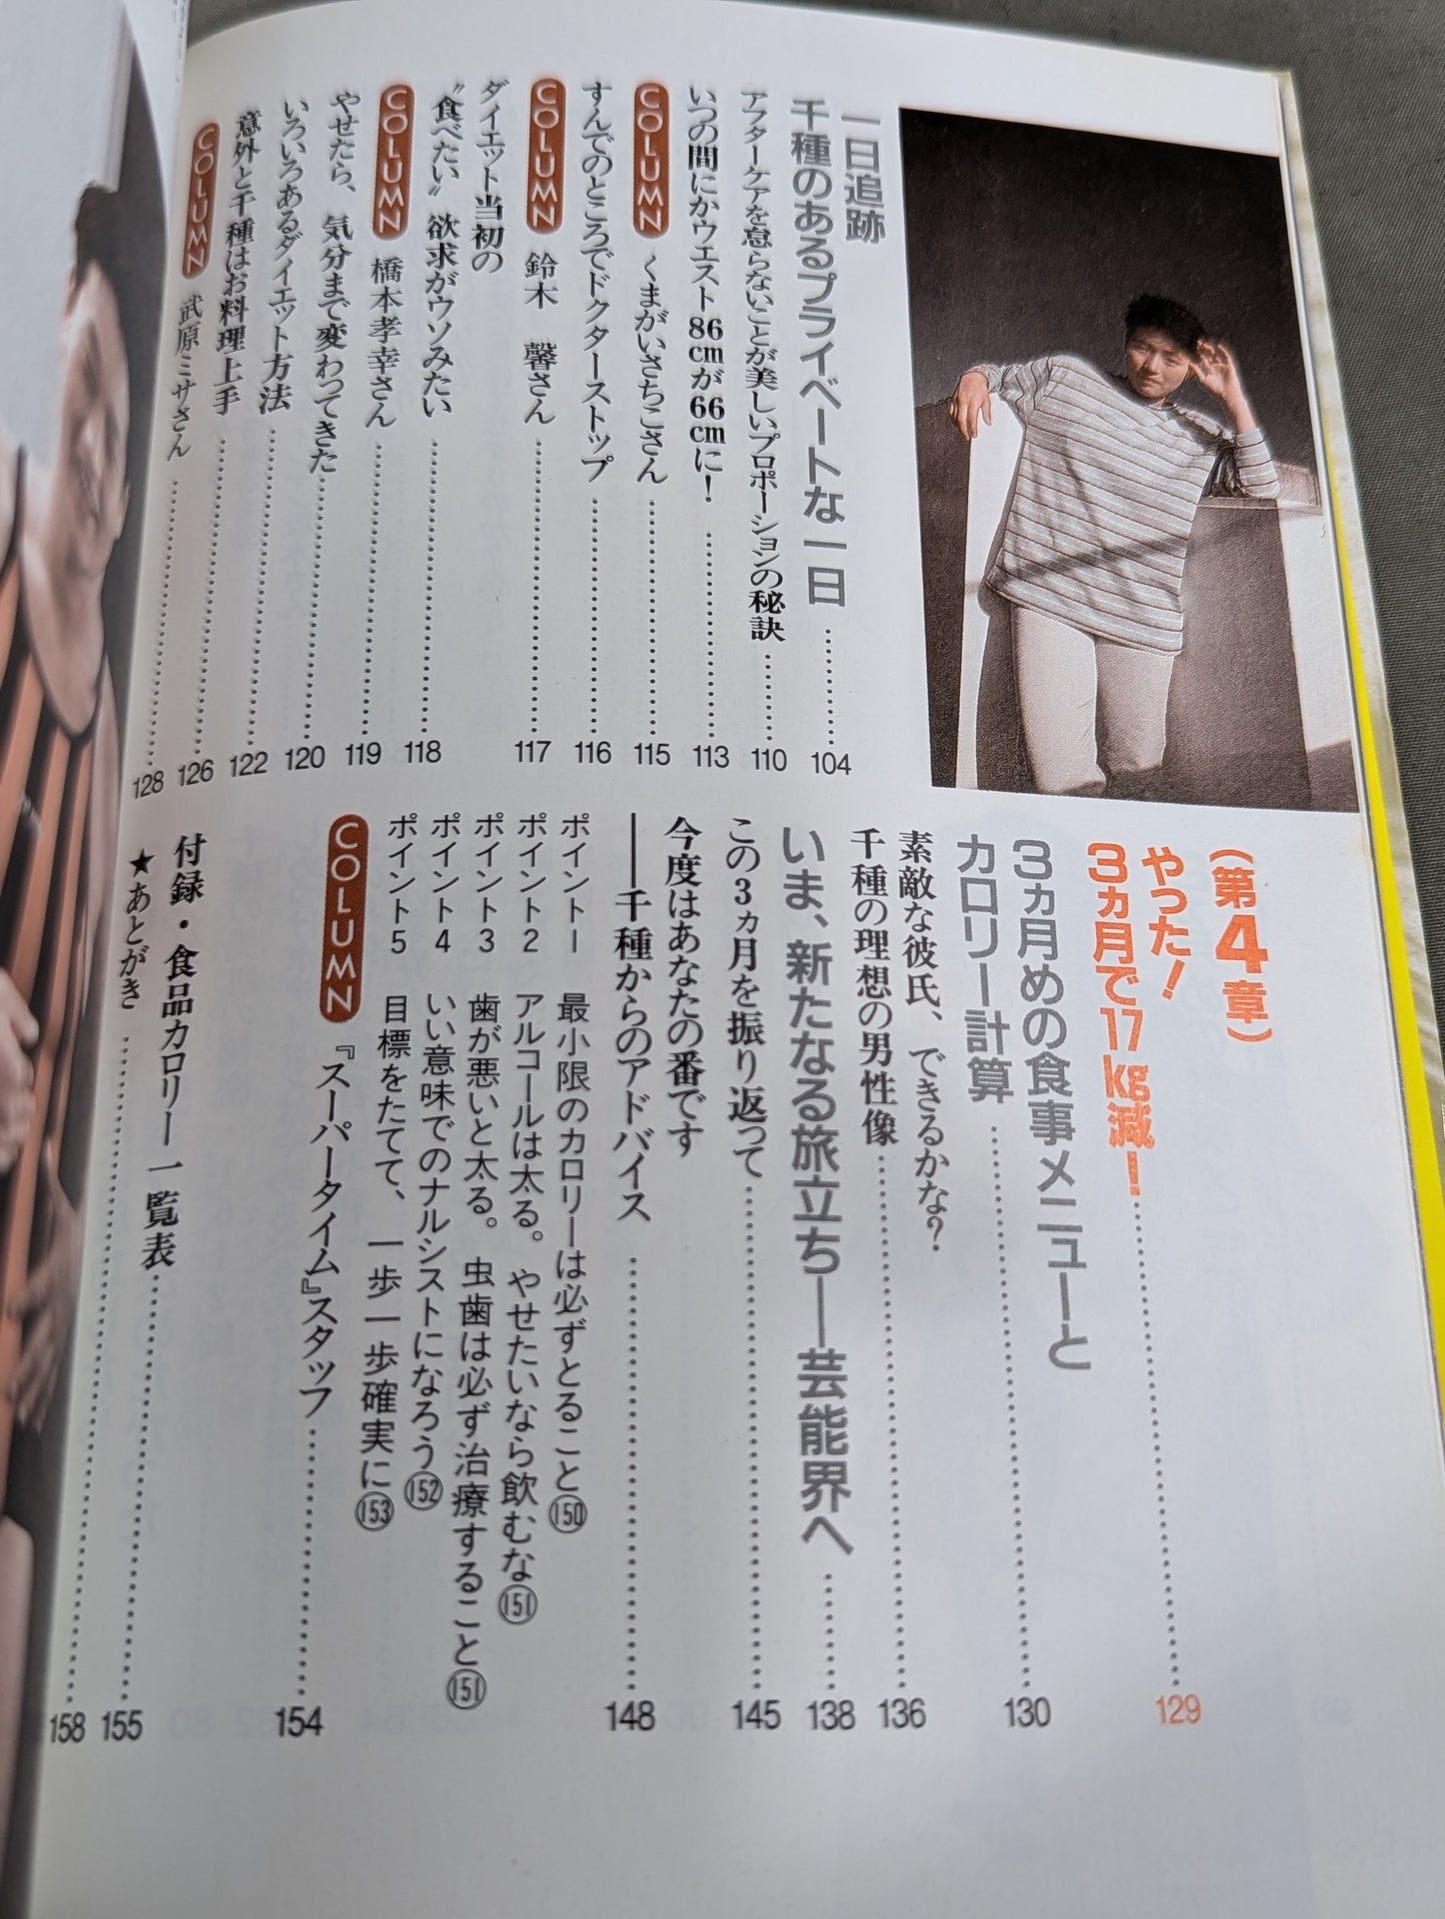 一日追跡
千種のあるプライベートな一日 104
アフターケアを怠らないことが美しいプロポーションの秘訣 110
いつの間にかウエスト86cmが66cmに! 113
COLUMN くまがいさちこさん 115
すんでのところでドクターストップ 116
COLUMN 鈴木 馨さん 117
ダイエット当初の
〝食べたい〟欲求がウソみたい 118
COLUMN 橋本孝幸さん 119
やせたら、気分まで変わってきた 120
いろいろあるダイエット方法 122
意外と千種はお料理上手 126
COLUMN 武原ミサさん 128
(第4章)
やった!
3ヵ月で17kg減! 129
3ヵ月めの食事メニューと
カロリー計算 130
素敵な彼氏、できるかな?
千種の理想の男性像 136
いま、新たなる旅立ち――芸能界へ 138
この3ヵ月を振り返って 145
今度はあなたの番です
――千種からのアドバイス 148
ポイント1 最小限のカロリーは必ずとること 150
ポイント2 アルコールは太る。やせたいなら飲むな 151
ポイント3 歯が悪いと太る。虫歯は必ず治療すること 151
ポイント4 いい意味でのナルシストになろう 152
ポイント5 目標をたてて、一歩一歩確実に 153
COLUMN 『スーパータイム』スタッフ 154
付録・食品カロリー一覧表 155
★あとがき 158